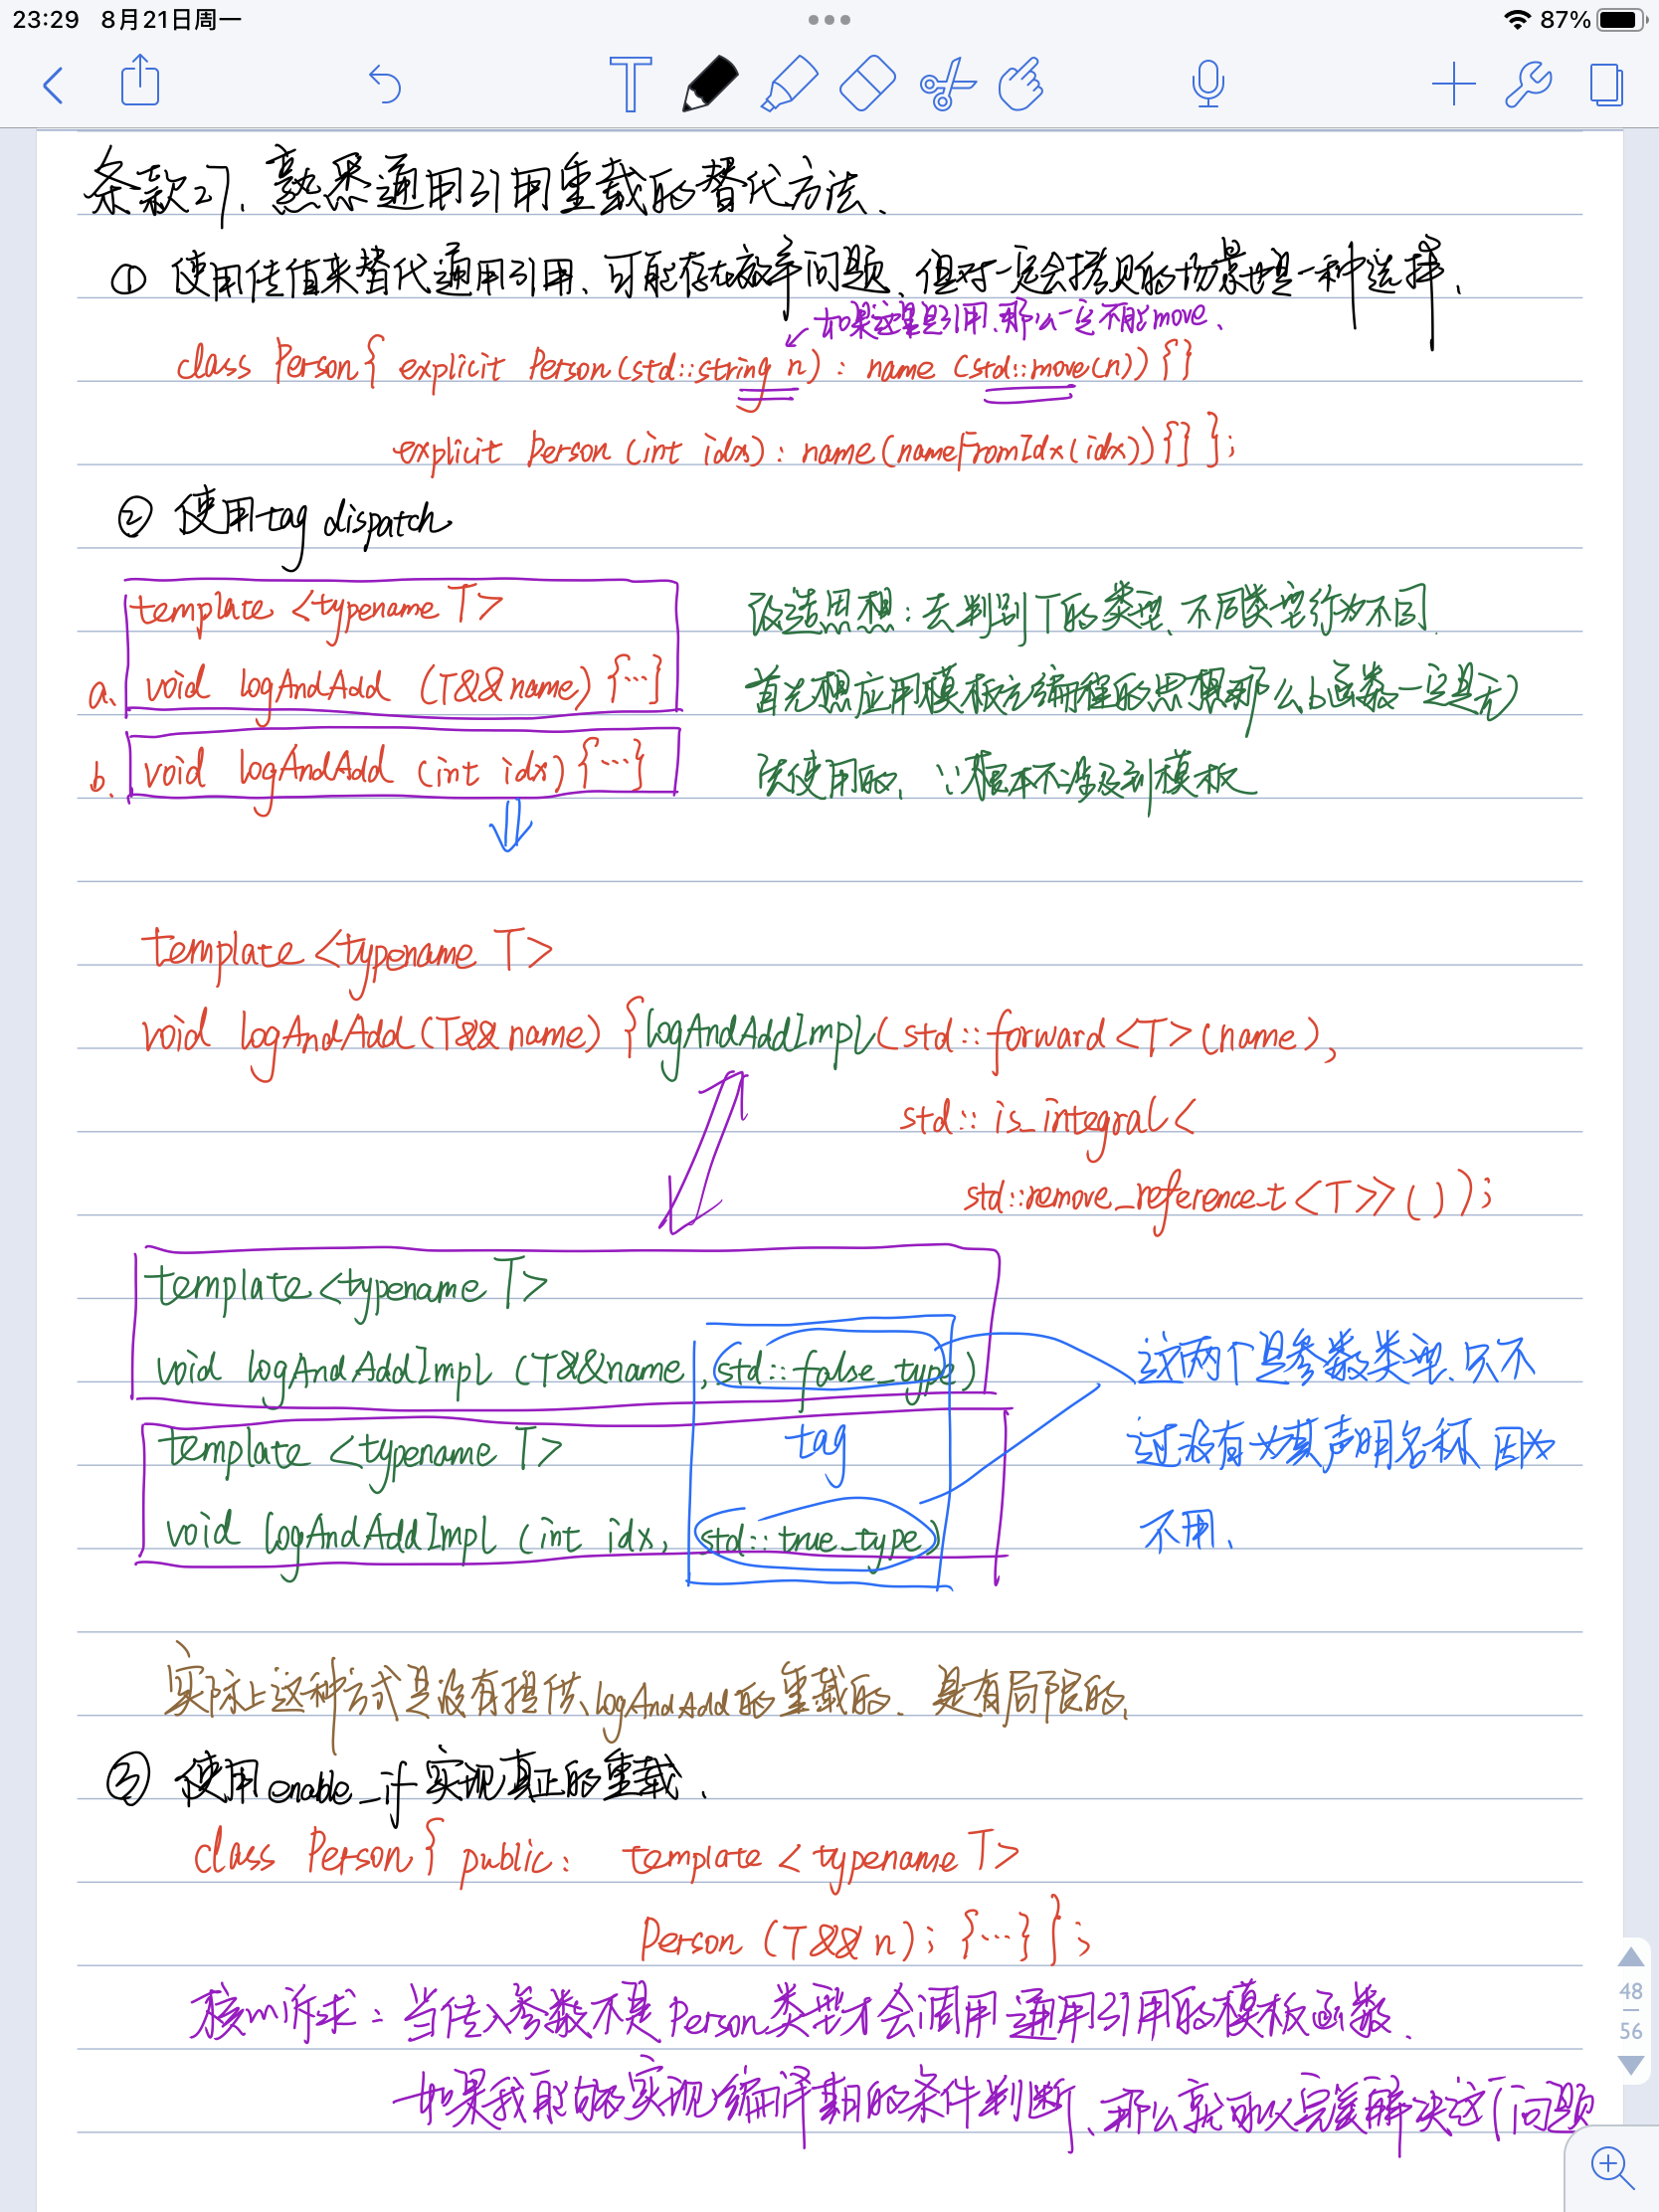 23:29 8月21日周一
87%
条款27、熟悉通用引用重载的替代方法、
① 使用传值来替代通用引用、可能存在效率问题、但对一定会拷贝的场景也是一种选择、
如果这里是引用、那么一定不能move、
class Person{ explicit Person(std::string n) : name (std::move(n)){}
explicit Person (int idx) : name(nameFromIdx(idx)){} };
② 使用tag dispatch
template <typename T>
a、 void logAndAdd (T&&name){…}
b. void logAndAdd (int idx){…}
改造思想：去判别T的类型、不同类型行为不同.
首先想应用模板元编程的思想那么b函数一定是无
法使用的、∵根本不涉及到模板
template <typename T>
void logAndAdd(T&&name) {logAndAddImpl(std::forward<T>(name),
std:: is_integral<
std::remove_reference_t<T>>());
template <typename T>
void logAndAddImpl (T&&name, std::false_type)
template <typename T>
tag
void logAndAddImpl (int idx, std::true_type)
这两个是参数类型、只不
过没有为其声明名称、因为
不用、
实际上这种方式是没有提供logAndAdd的重载的、是有局限的、
③ 使用enable_if实现真正的重载、
class Person{ public: template <typename T>
Person (T&& n); {…} };
核心诉求：当传入参数不是Person类型才会调用通用引用的模板函数、
如果我能够实现编译期的条件判断、那么就可以完美解决这个问题
48
56